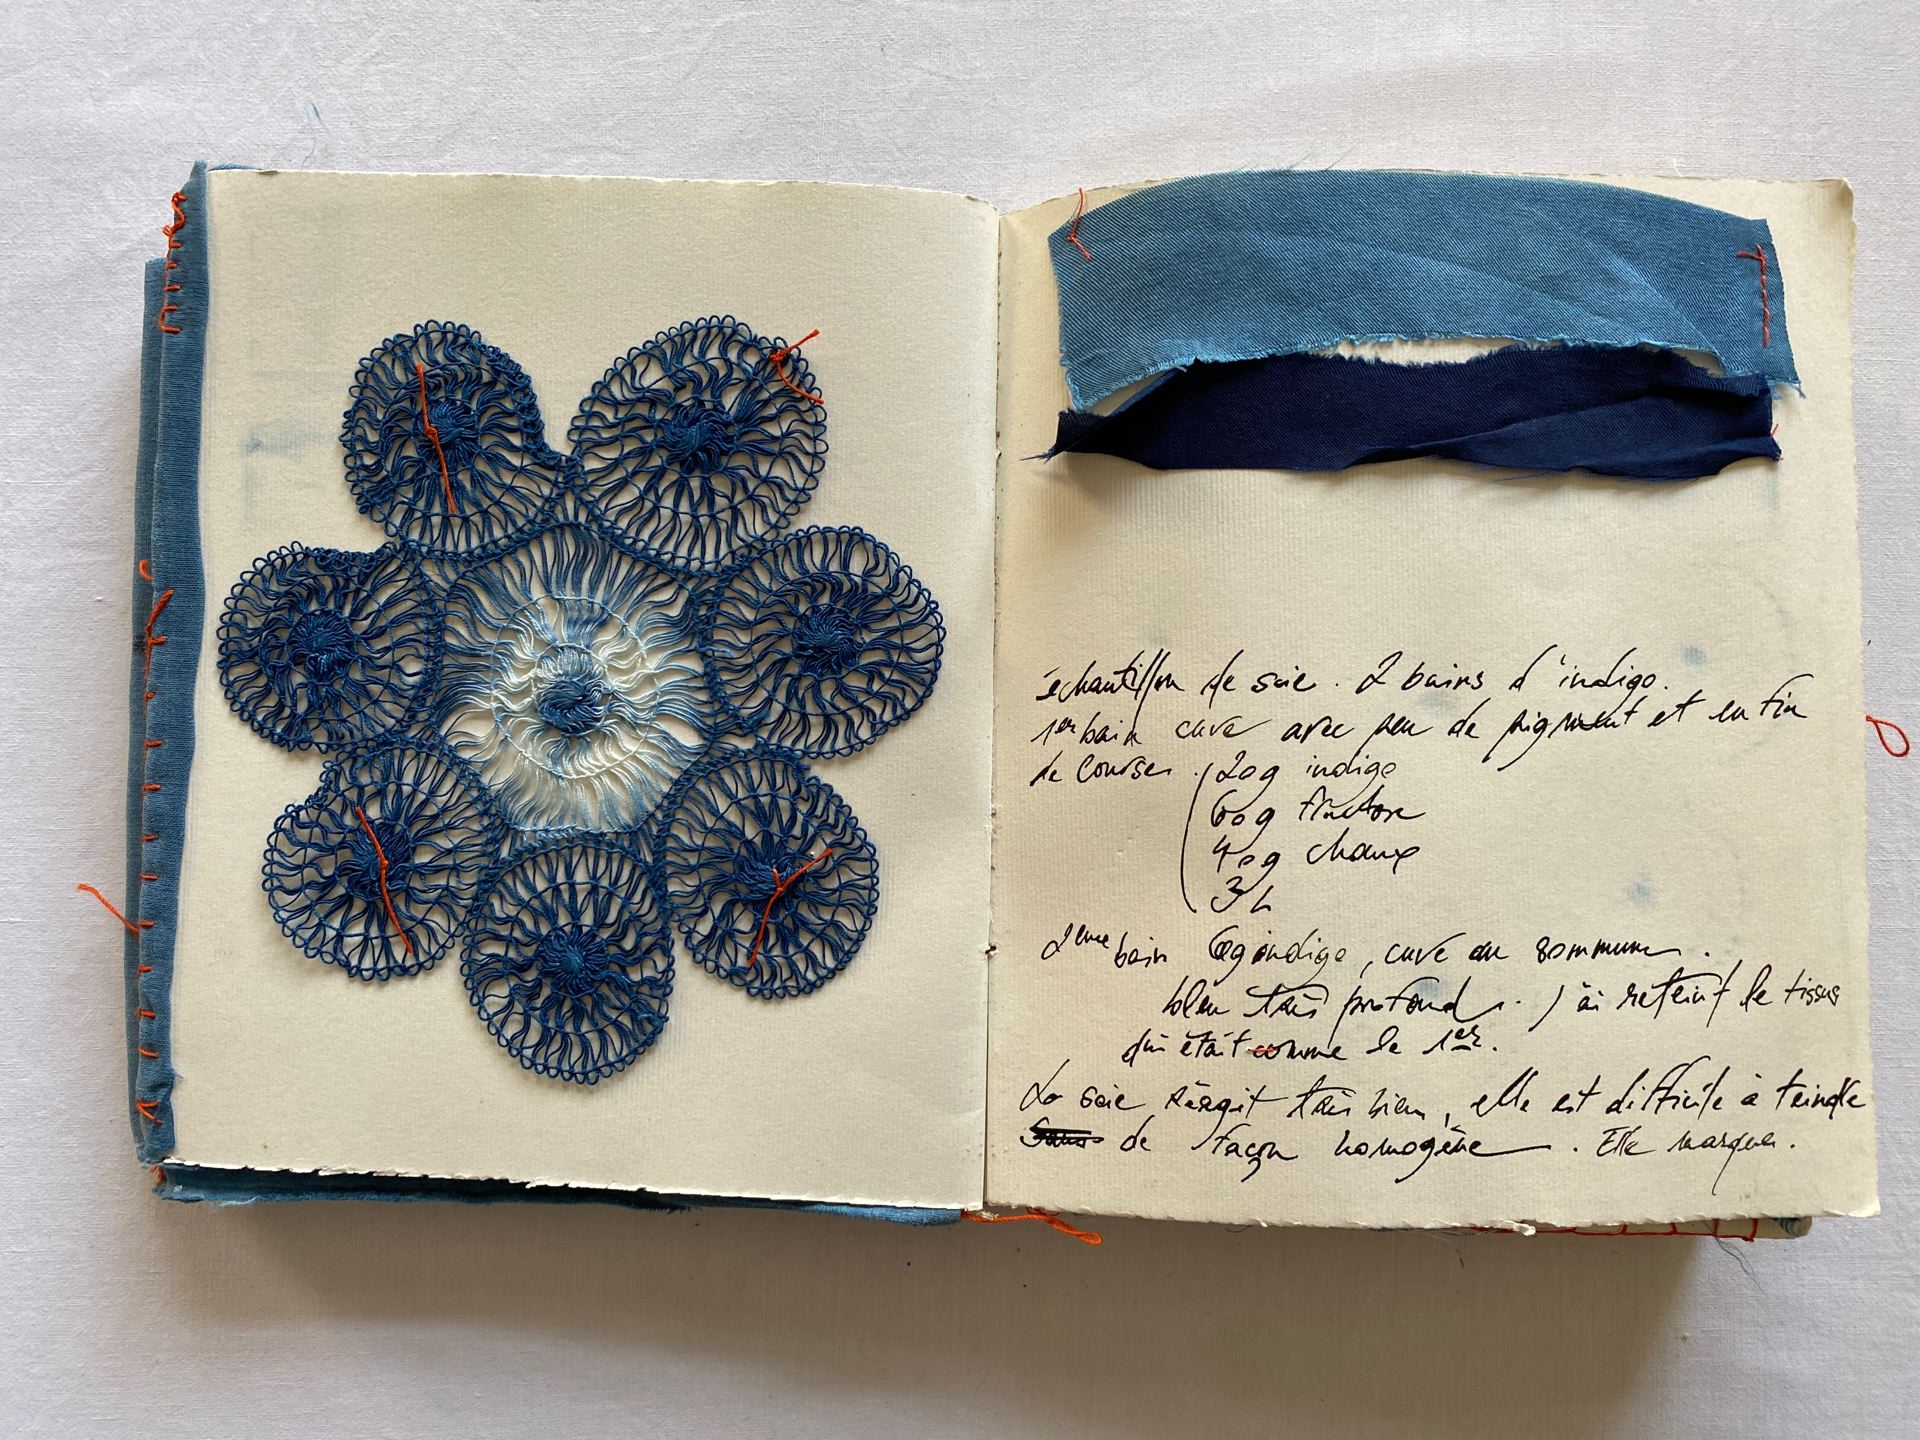 échantillon de soie. 2 bains d'indigo.
1er bain cuve avec peu de pigment et en fin
de course. 20g indigo
60g fructose
40g chaux
3 L
2ème bain 60g indigo, cuve au summum.
bleu très profond. j'ai reteint le tissus
qui était comme le 1er.
La soie réagit très bien, elle est difficile à teindre
de façon homogène. Elle marque.